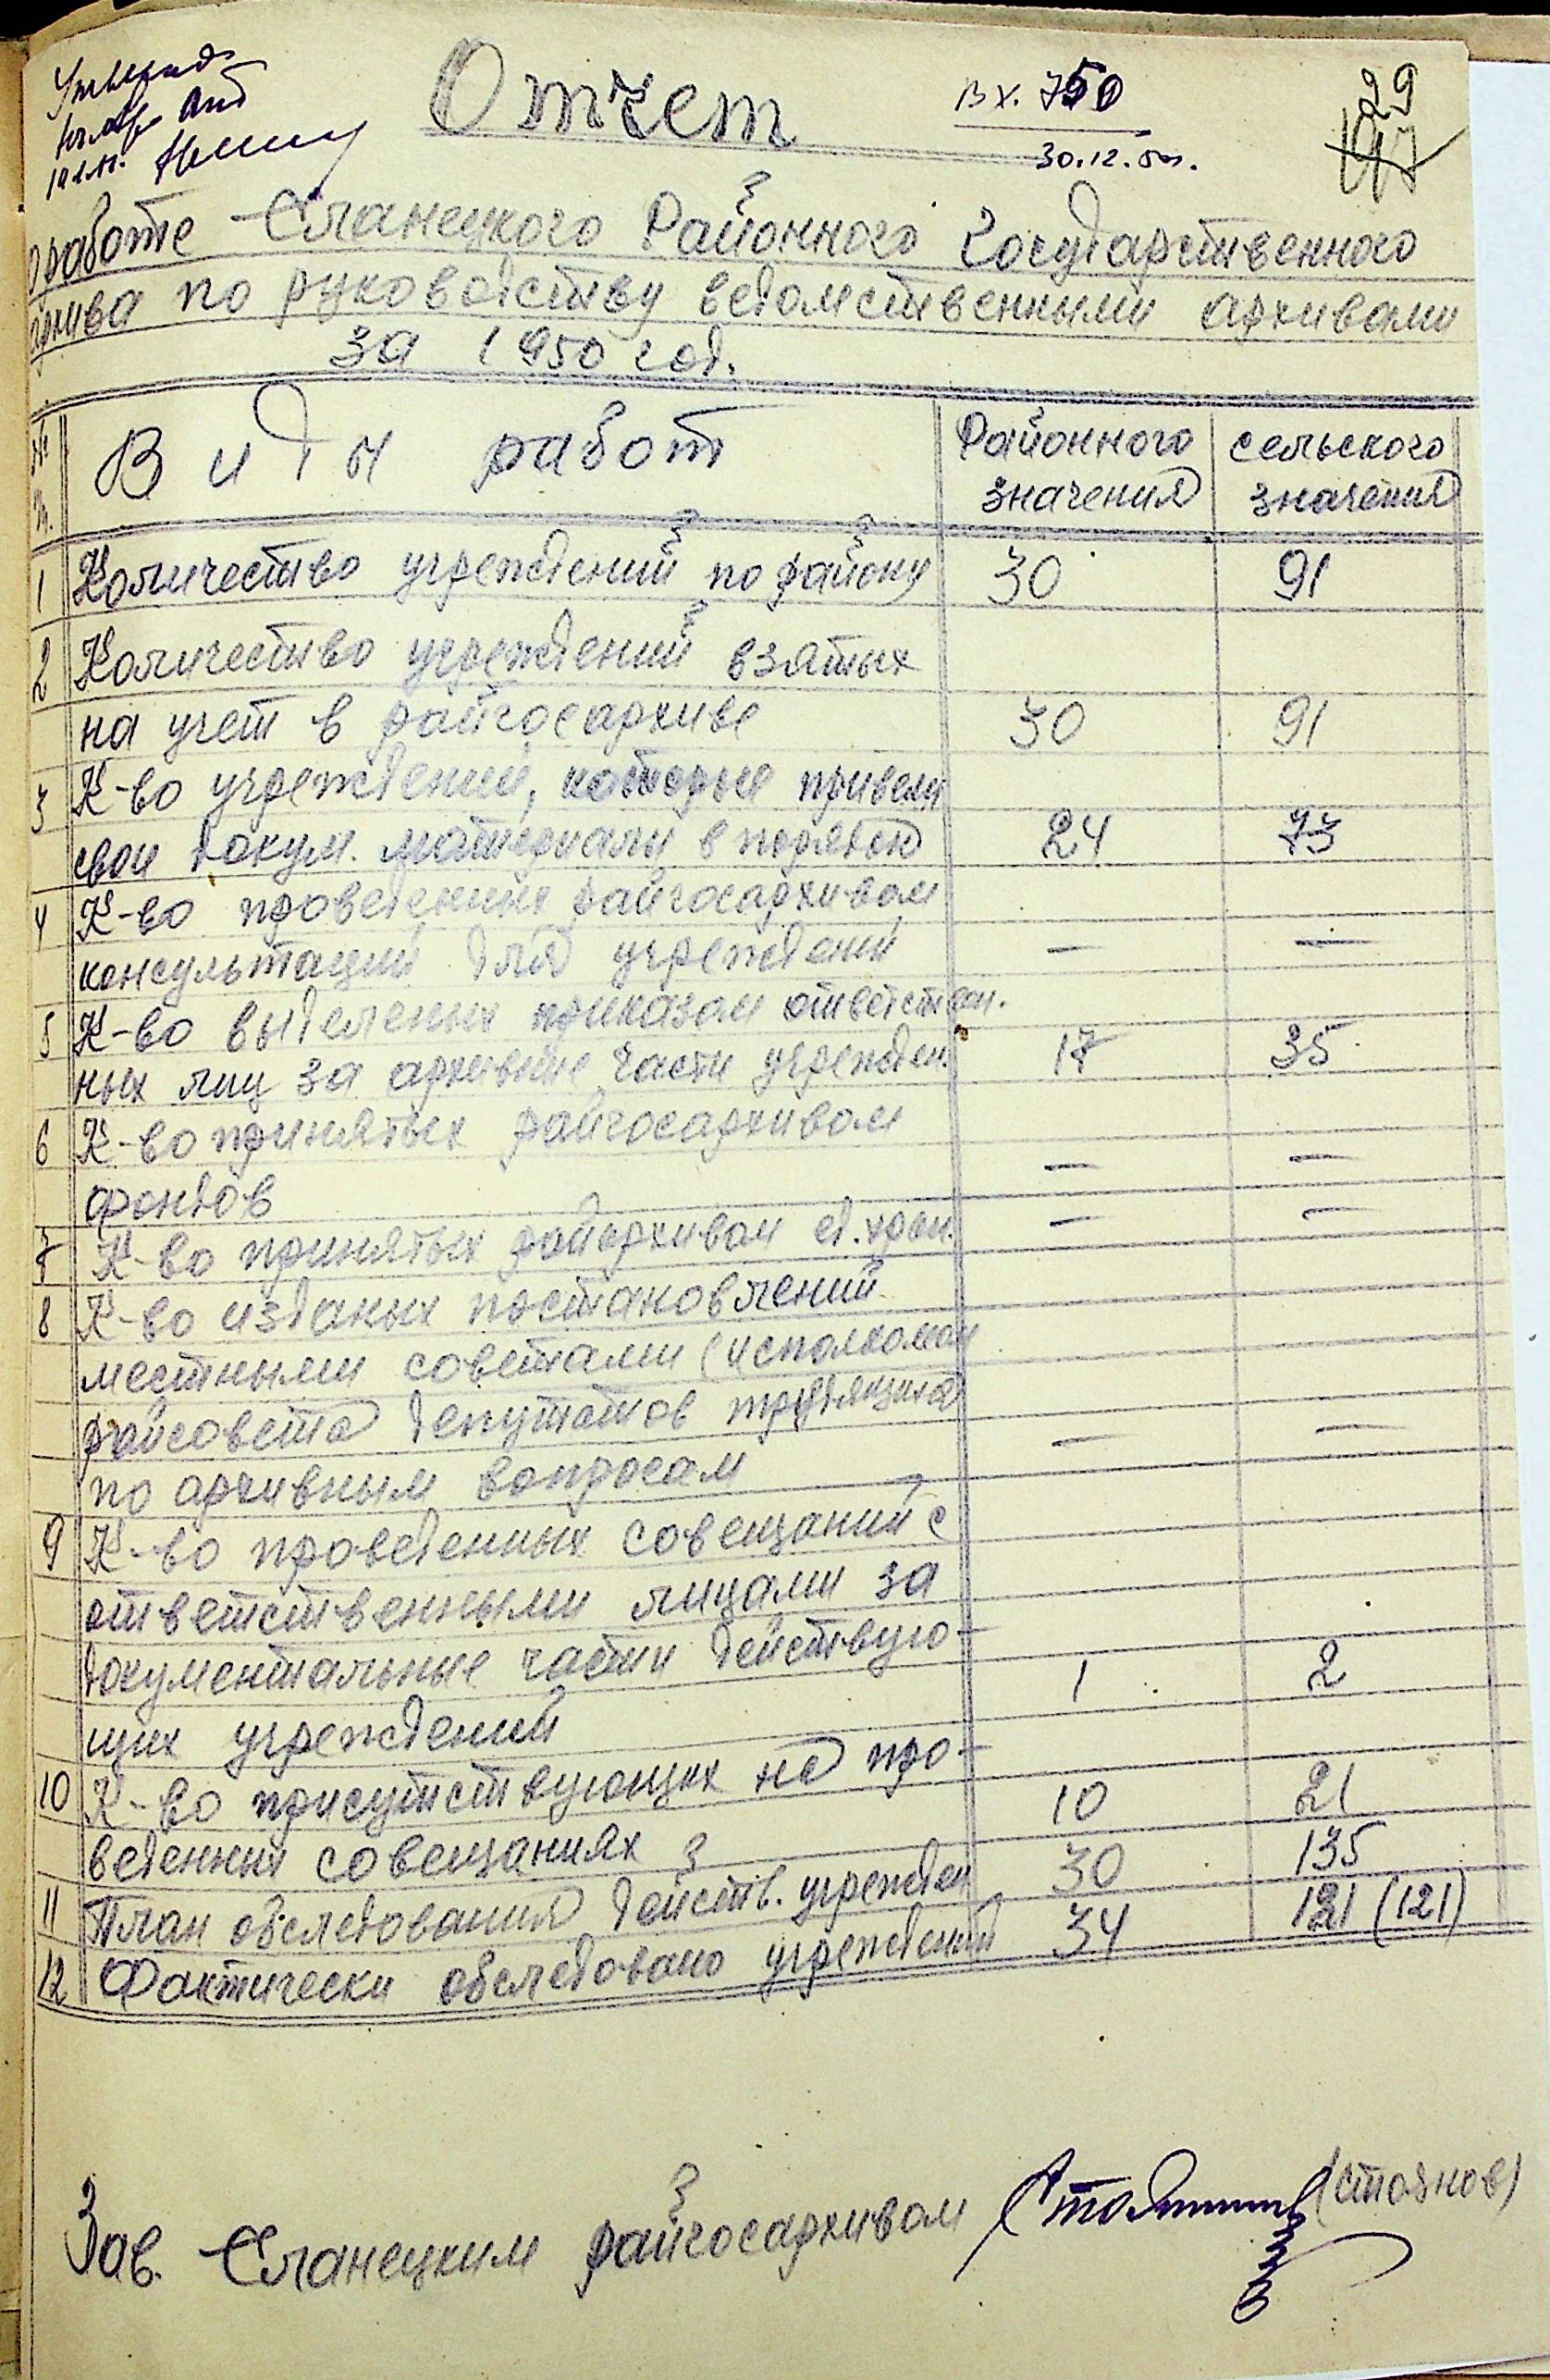 Отчет
Вх. 750
30.12.50г.
29
197
о работе Еланецкого Районного Государственного
архива по руководству ведомственными архивами
за 1950 год.
№ п.
Виды работ
Районного значения
сельского значения
1 Количество учреждений по району 30 91
2 Количество учреждений взятых
на учет в райгосархиве 30 91
3 К-во учреждений, которые привели
свои докум. материалы в порядок 24 73
4 К-во проведенных райгосархивом
консультаций для учреждений — —
5 К-во выделеных приказом ответствен.
ных лиц за архивные части учрежден. 17 35
6 К-во принятых райгосархивом
фондов — —
7 К-во принятых райархивом ед. хран. — —
8 К-во изданых постановлений
местными советами (исполкомом
райсовета депутатов трудящихся
по архивным вопросам — —
9 К-во проведенных совещаний с
ответственными лицами за
документальные части действую-
щих учреждений 1 2
10 К-во присутствующих на про-
веденных совещаниях 10 21
11 План обследования действ. учрежден 30 135
12 Фактически обследовано учреждений 34 121 (121)
Зав. Еланецким райгосархивом (Стоянов)